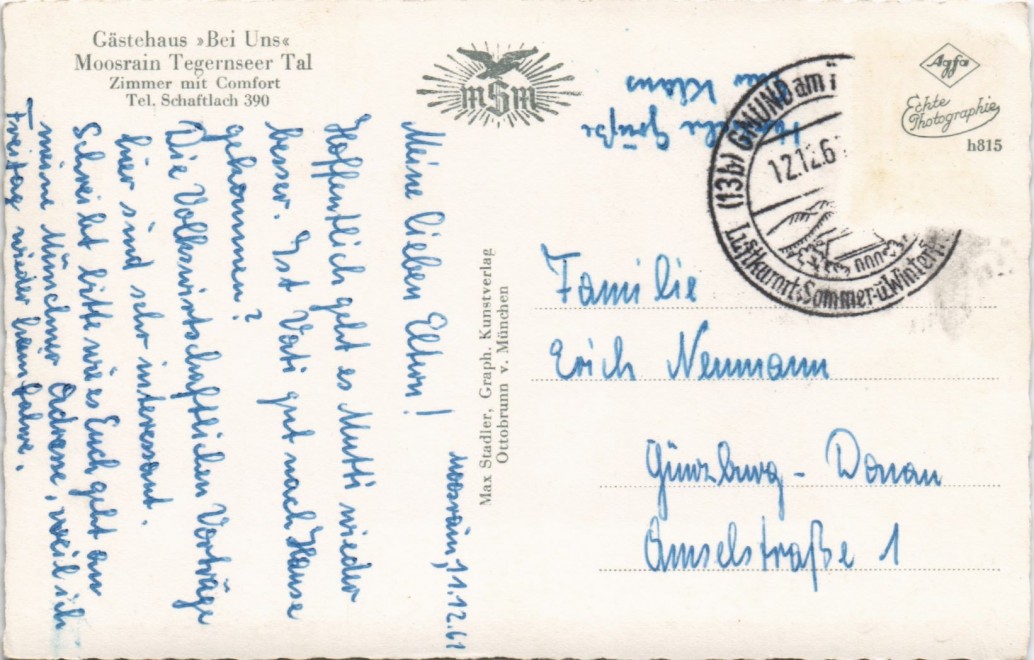 Gästehaus »Bei Uns«
Moosrain Tegernseer Tal
Zimmer mit Comfort
Tel. Schaftlach 390
mSm
Agfa
Echte
Photographie
h815
(13b) GMUND am
12.12.6
Luftkurort-Sommer-u.Winter
Moosrain, 11.12.61
Meine lieben Eltern!
Hoffentlich geht es Mutti wieder
besser. Ist Vati gut nach Hause
gekommen?
Die Volkswirtschaftlichen Vorträge
hier sind sehr interessant.
Schreibt bitte wie es Euch geht an
meine Münchner Adresse, weil ich
Freitag wieder heimfahre.
Herzliche Grüße
Euer Klaus
Max Stadler, Graph. Kunstverlag
Ottobrunn v. München
Familie
Erich Neumann
Günzburg - Donau
Amselstraße 1